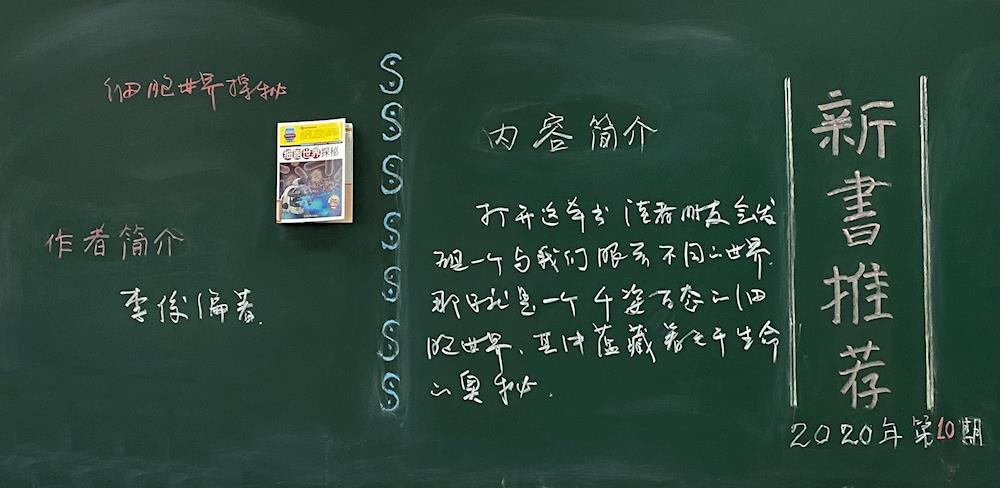 细胞世界探秘
细胞世界探秘
作者简介
李俊编著.
内容简介
打开这本书 读者朋友会发
现一个与我们眼 不同的世界.
那就是一个千姿百态的细
胞世界、其中蕴藏着关于生命
的奥秘.
新書推荐
2020年第10期